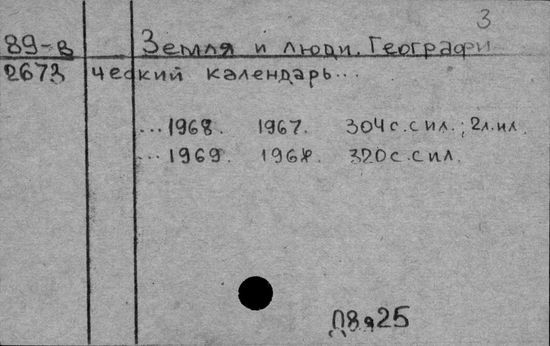 3
89-в Земля и люди. Географи
2673 ческий календарь...
...1968. 1967. 304 с. с ил.; 2 л. ил.
...1969. 1968. 320 с. с ил.
Д8я25